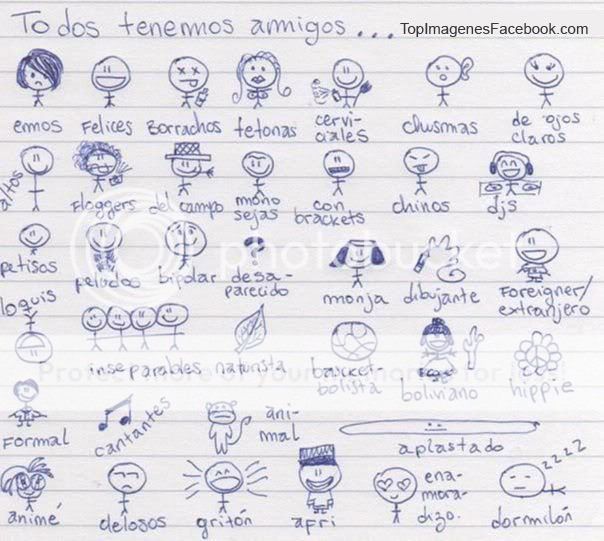 Todos tenemos amigos...
TopImagenesFacebook.com
emos Felices Borrachos tetonas cervi-
ciales chusmas de ojos
claros
altos Floggers del campo mono
sejas con
brackets chinos djs
petisos peludos bipolar desa-
parecido monja dibujante Foreigner/
extranjero
loquis inseparables naturista basket-
bolista boliviano hippie
Formal cantantes ani-
mal aplastado
animé delosos gritón afri ena-
mora-
dizo. zzzz
dormilón
photobucket